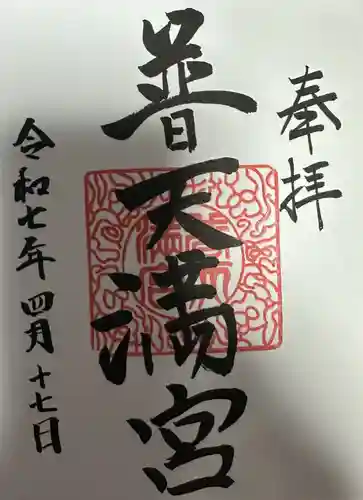 奉拝
普天満宮
令和七年四月十七日